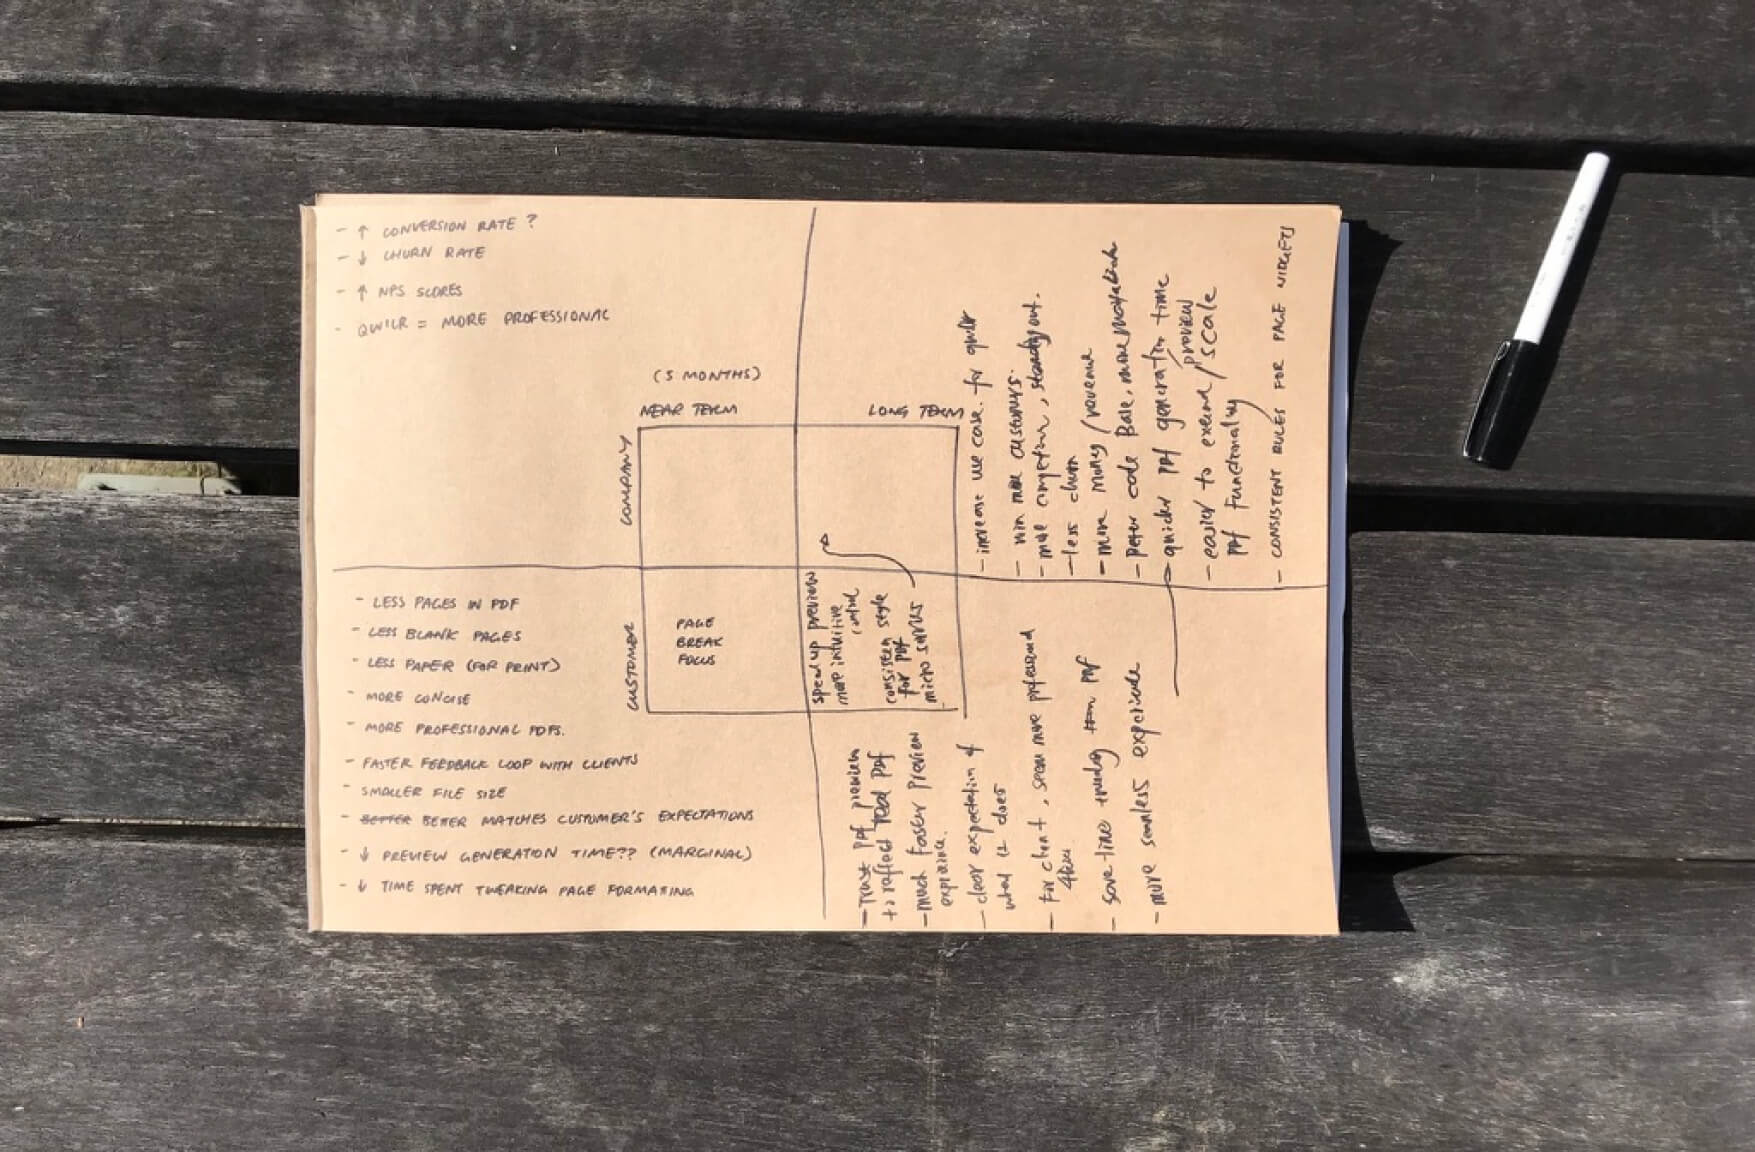 - ↑ CONVERSION RATE ?
- ↓ CHURN RATE
- ↑ NPS SCORES
- QWILR = MORE PROFESSIONAL
(3 MONTHS)
NEAR TERM
LONG TERM
COMPANY
CUSTOMER
PAGE
BREAK
FOCUS
speed up preview
more intuitive
control
consisten style
for PDF
micro
- LESS PAGES IN PDF
- LESS BLANK PAGES
- LESS PAPER (FOR PRINT)
- MORE CONCISE
- MORE PROFESSIONAL PDFS.
- FASTER FEEDBACK LOOP WITH CLIENTS
- SMALLER FILE SIZE
- BETTER BETTER MATCHES CUSTOMER'S EXPECTATIONS
- ↓ PREVIEW GENERATION TIME?? (MARGINAL)
- ↓ TIME SPENT TWEAKING PAGE FORMATING
- increase use case. for qwilr
- win more customers.
- more competitive, standing out.
- less churn
- more money / revenue
- code Base, more
- quicker PDF generation time
preview
- easier to extend / scale
PDF functionality
- CONSISTENT RULES FOR PAGE WIDGETS
- Trust PDF preview
to reflect real PDF
- much faster preview
- clear expectation of
what it does
- for client, seem more professional
- save time PDF
- more seamless experience